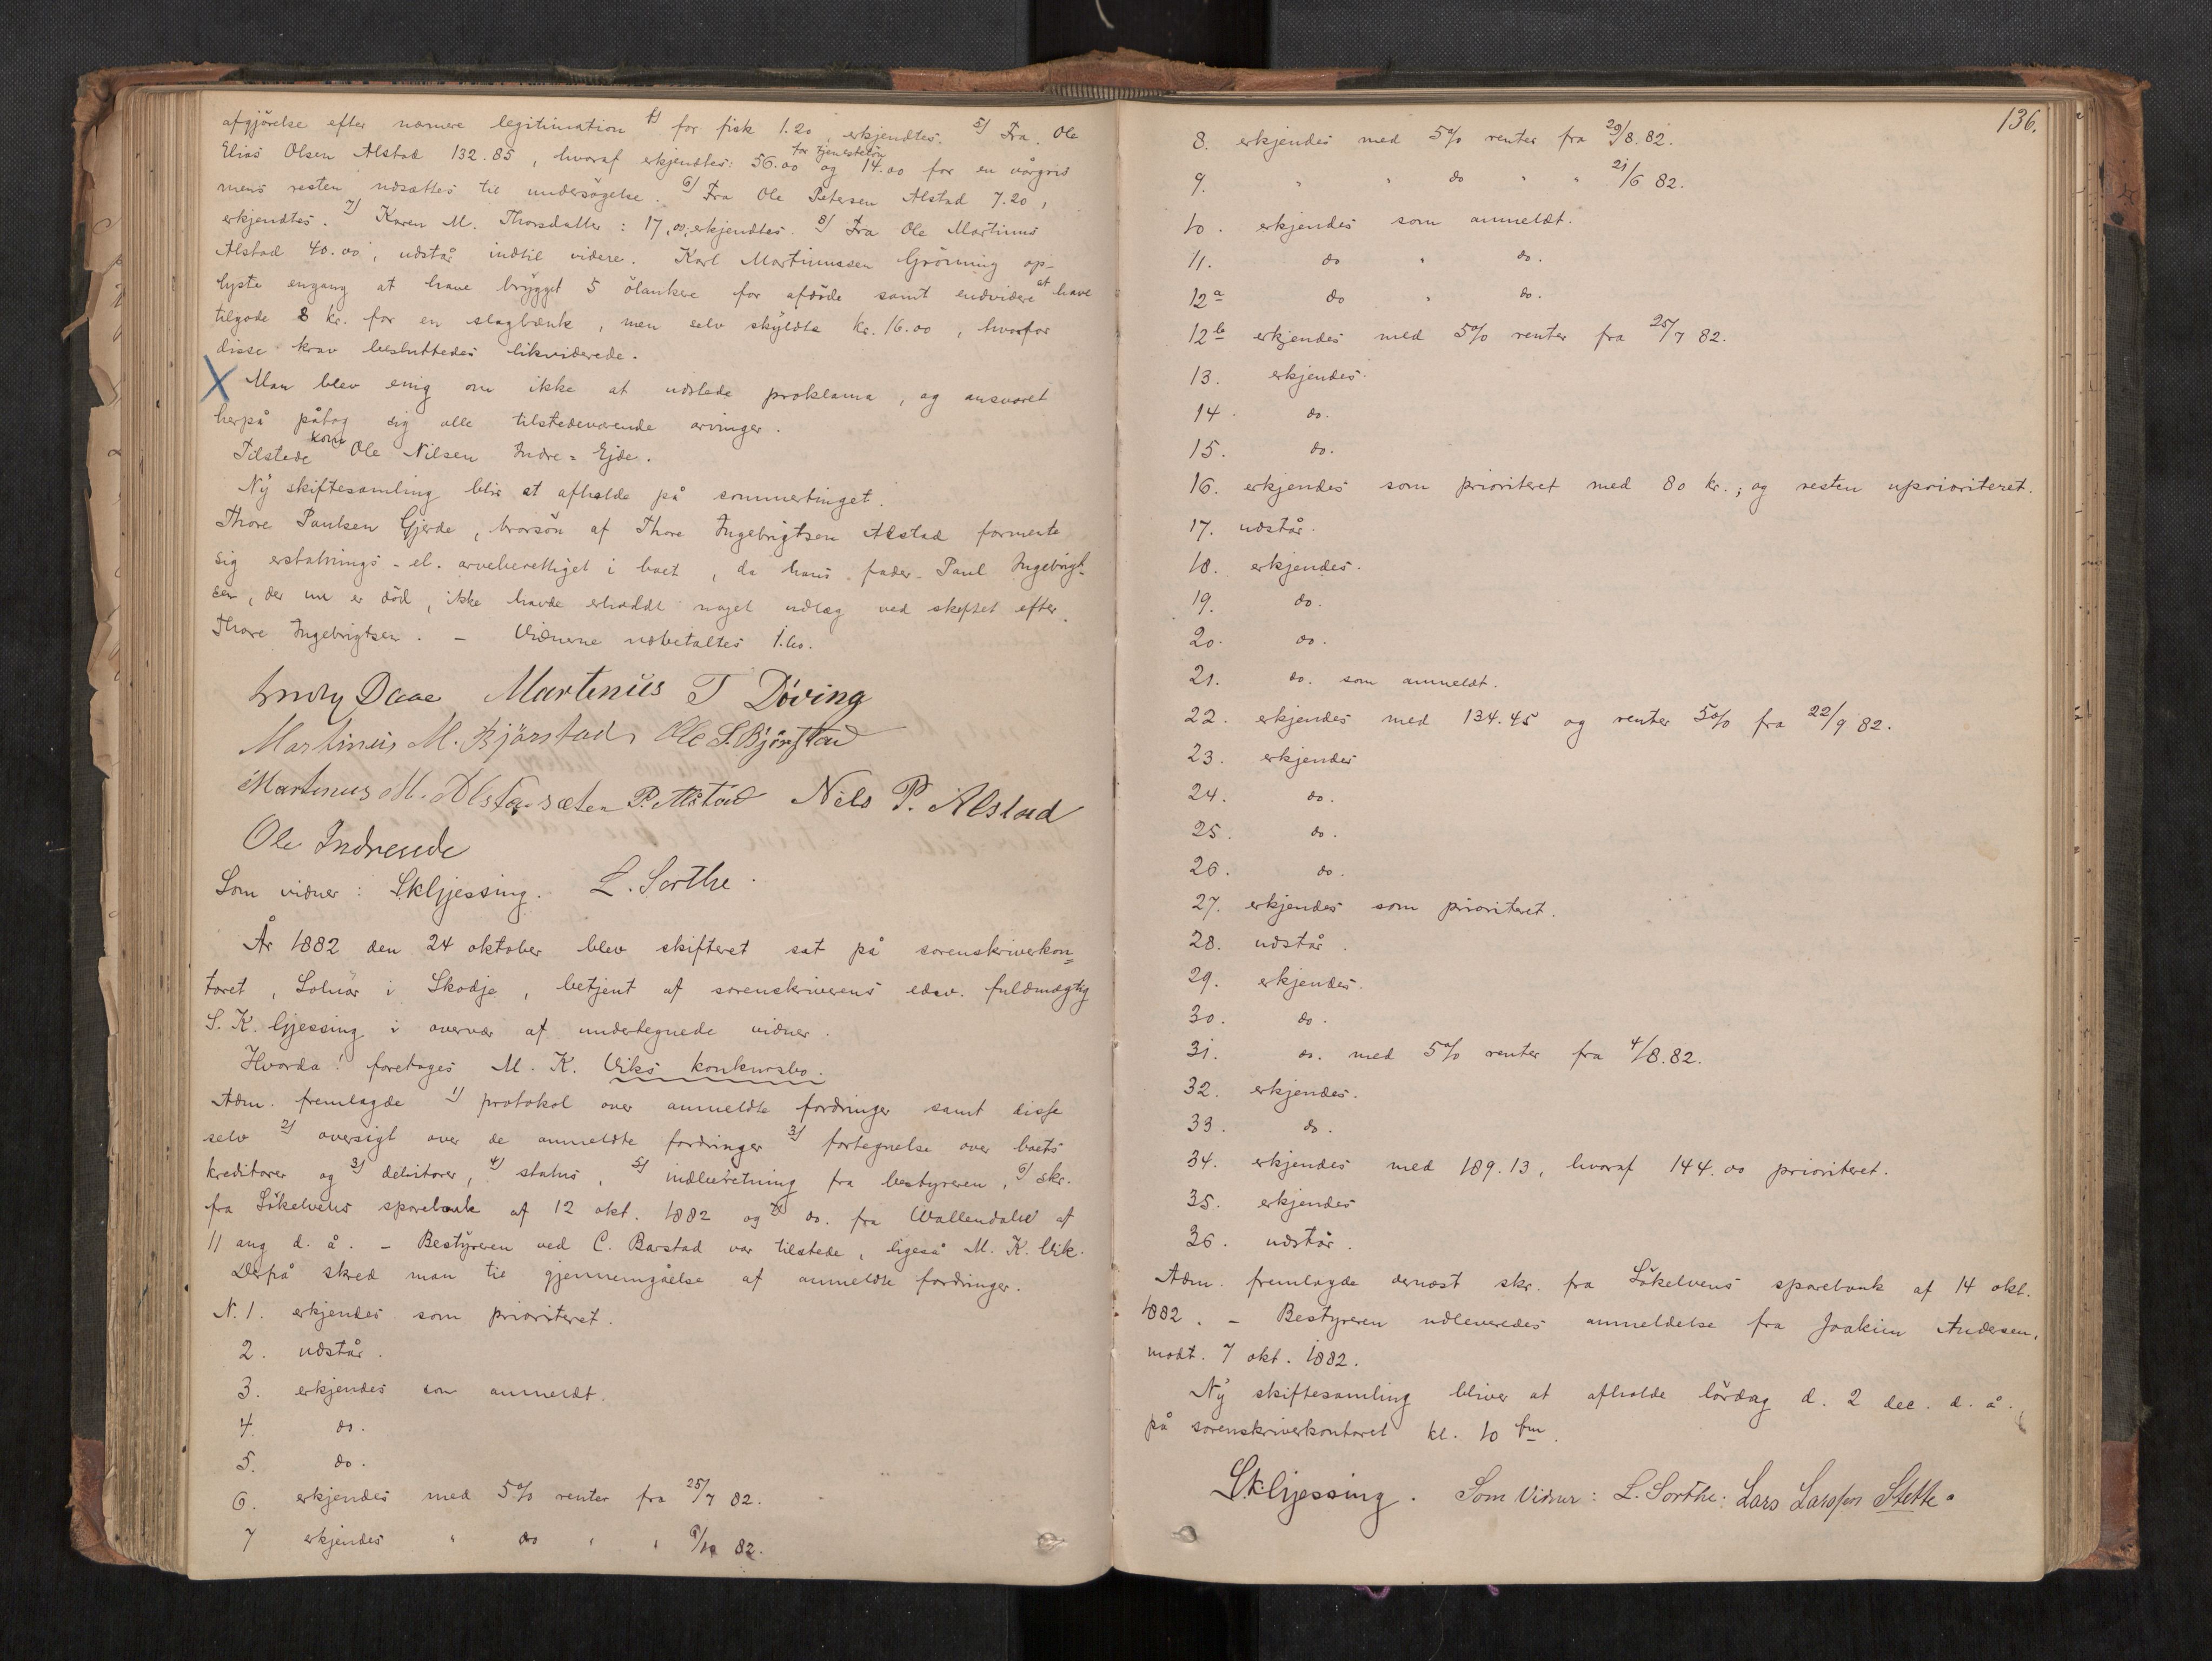 afgjörelse efter nærmere legitimation 4) for fisk 1.20, erkjendtes. 5) Fra Ole
for tjenestelön
Elias Olsen Alstad 132.85, hvoraf erkjendtes: 56.00 og 14.00 for en vårgris
mens resten udsættes til undersögelse. 6) Fra Ole Petersen Alstad 7.20,
erkjendtes. 7) Karen M. Thorsdatter: 17,00, erkjendtes. 8) Fra Ole Martinus
Alstad 40.00, udstår indtil videre. Karl Martinussen Grönning op-
lyste engang at have brygget 5 ölankere for afdöde samt endvidere at have
tilgode 8 kr. for en slagbænk, men selv skyldte kr. 16.00, hvorfor
disse krav besluttedes likviderede.
X Man blev enig om ikke at udstede proklama, og ansvaret
herpå påtog sig alle tilstedeværende arvinger.
Tilstede kom Ole Nilsen Indre=Ejde.
Ny skiftesamling blir at afholde på sommertinget.
Thore Paulsen Gjerde, brorsön af Thore Ingebrigtsen Alstad formente
sig erstatnings- el. arveberettiget i boet, da hans fader Paul Ingebrigt-
sen, der nu er död, ikke havde erholdt noget udlæg ved skiftet efter
Thore Ingebrigtsen. – Vidnerne udbetaltes 1.60.
Daae Martinus T Döving
Martinus M. Bjørstad, Ole L. Bjørstad
Martinus M. Alstadsæter P. Alstad Nils P. Alstad
Ole Indreeide
Som vidner: S.K.Gjessing. L. Sorthe.
År 1882 den 24 oktober blev skifteret sat på sorenskriverkon=
toret, Solnör i Skodje, betjent af sorenskriverens edsv. fuldmægtig
S. K. Gjessing i overvær af undertegnede vidner.
Hvorda! foretoges M. K. Viks konkursbo.
Adm. fremlagde 1) protokol over anmeldte fordringer samt disse
selv 2) oversigt over de anmeldte fordringer 3) fortegnelse over boets
kreditorer og 3) debitorer, 4) status, 5) indberetning fra bestyreren, 6) skr.
fra Sökelvens sparebank af 12 okt. 1882 og 7) do. fra Wallendahl af
11 aug d. å. – Bestyreren ved C. Barstad var tilstede, ligeså M. K. Vik.
Derpå skred man til gjennemgåelse af anmeldte fordringer.
N. 1. erkjendes som prioriteret.
2. udstår.
3. erkjendes som anmeldt.
4. do.
5. do.
6. erkjendes med 5% renter fra 25/7 82.
7 erkjendes " do " " 9/10 82.
136.
8. erkjendes med 5% renter fra 29/8.82.
9. " " do " " 21/6 82.
10. erkjendes som anmeldt.
11. do " do.
12a do " do.
12b erkjendes med 5% renter fra 25/7 82.
13. erkjendes.
14. do.
15. do.
16. erkjendes som prioriteret med 80 kr.; og resten uprioriteret.
17. udstår.
18. erkjendes.
19. do.
20. do.
21. do. som anmeldt.
22. erkjendes med 134.45 og renter 5% fra 22/9 82.
23. erkjendes
24. do.
25. do.
26. do.
27. erkjendes som prioriteret.
28. udstår.
29. erkjendes.
30. do.
31. do. med 5% renter fra 4/8.82.
32. erkjendes.
33. do.
34. erkjendes med 189.13, hvoraf 144.00 prioriteret.
35. erkjendes
36. udstår.
Adm. fremlagde dernæst skr. fra Sökelvens sparebank af 14 okt.
1882. – Bestyreren udleveredes anmeldelse fra Joakim Andersen,
modt. 7 okt. 1882.
Ny skiftesamling bliver at afholde lördag d. 2 dec. d. å.,
på sorenskriverkontoret kl. 10 fm.
S.K.Gjessing. Som Vidner: L. Sorthe. Lars Larssen Stette.